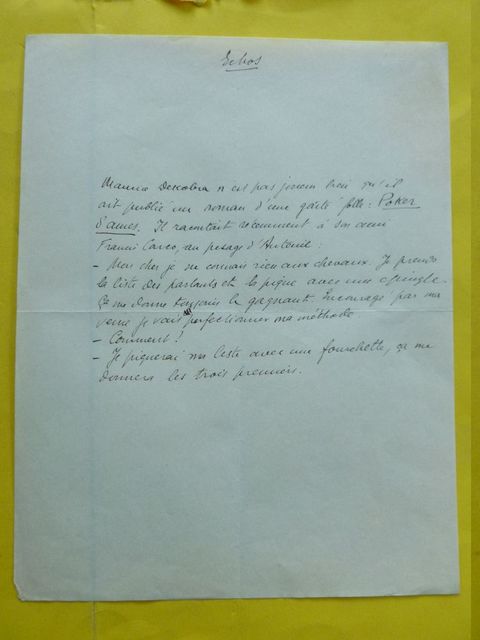 Echos
Maurice Dekobra n'est pas joueur bien qu'il
ait publié un roman d'une gaîté folle : Poker
d'ames. Il racontait récemment à son ami
Francis Carco, au pesage d'Auteuil :
- Mon cher je ne connais rien aux chevaux. Je prends
la liste des partants et la pique avec une épingle.
Ça me donne toujours le gagnant. Encouragé par ma
veine je vais perfectionner ma méthode
- Comment !
- Je piquerai ma liste avec une fourchette, ça me
donnera les trois premiers.